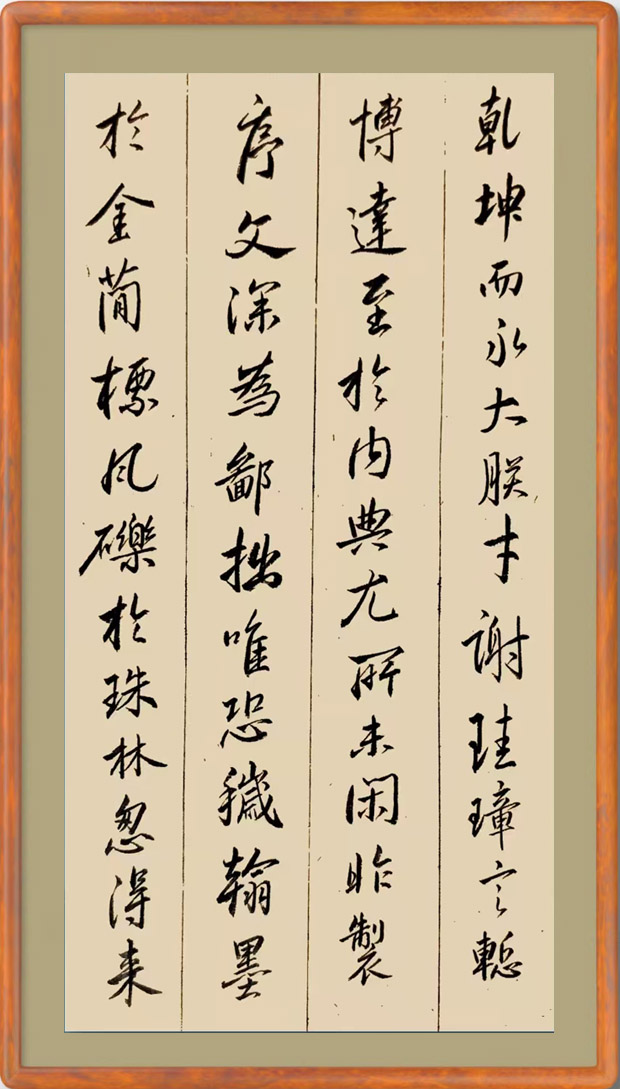 乾坤而永大朕才謝珪璋言慙
博達至於内典尤所未閑昨製
序文深為鄙拙唯恐穢翰墨
於金簡標瓦礫於珠林忽得来